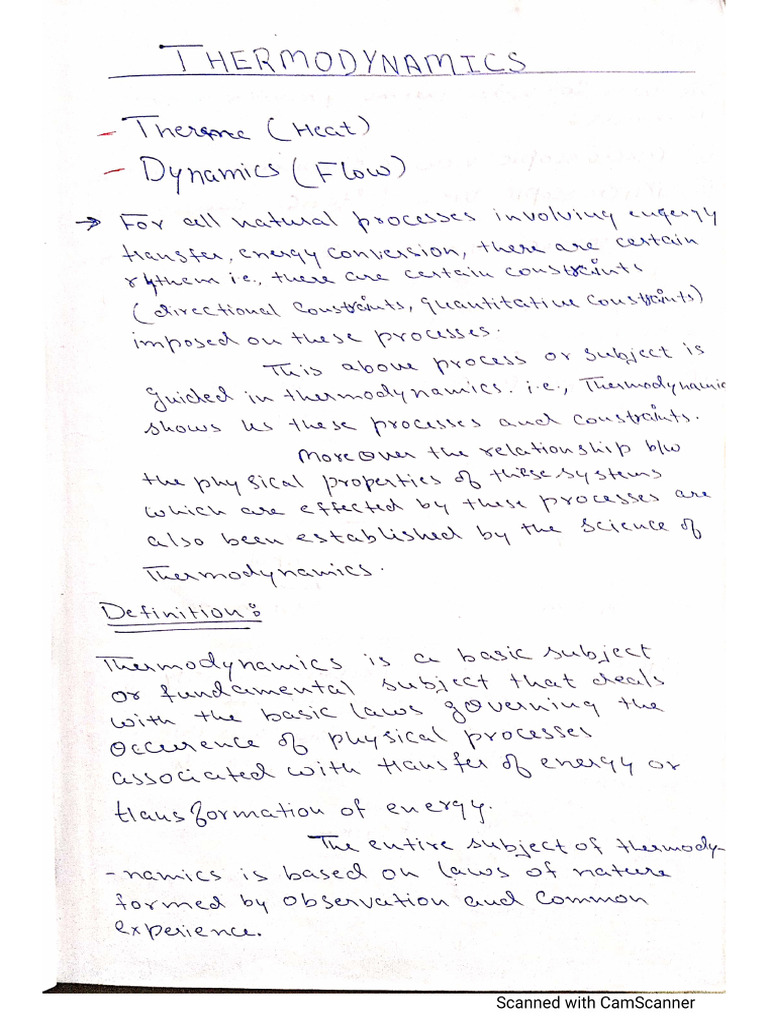 THERMODYNAMICS
- Therme (Heat)
- Dynamics (Flow)
→ For all natural processes involving eugergy
transfer, energy conversion, there are certain
rythem i.e., there are certain constraints
(directional constraints, quantitative constraints)
imposed on these processes.
This above process or subject is
guided in thermodynamics. i.e., Thermodynamic
shows us these processes and constraints.
Moreover the relationship b/w
the physical properties of these systems
which are effected by these processes are
also been established by the science of
Thermodynamics.
Definition:
Thermodynamics is a basic subject
or fundamental subject that deals
with the basic laws governing the
occurence of physical processes
associated with transfer of energy or
transformation of energy.
The entire subject of thermody-
-namics is based on laws of nature
formed by observation and common
experience.
Scanned with CamScanner